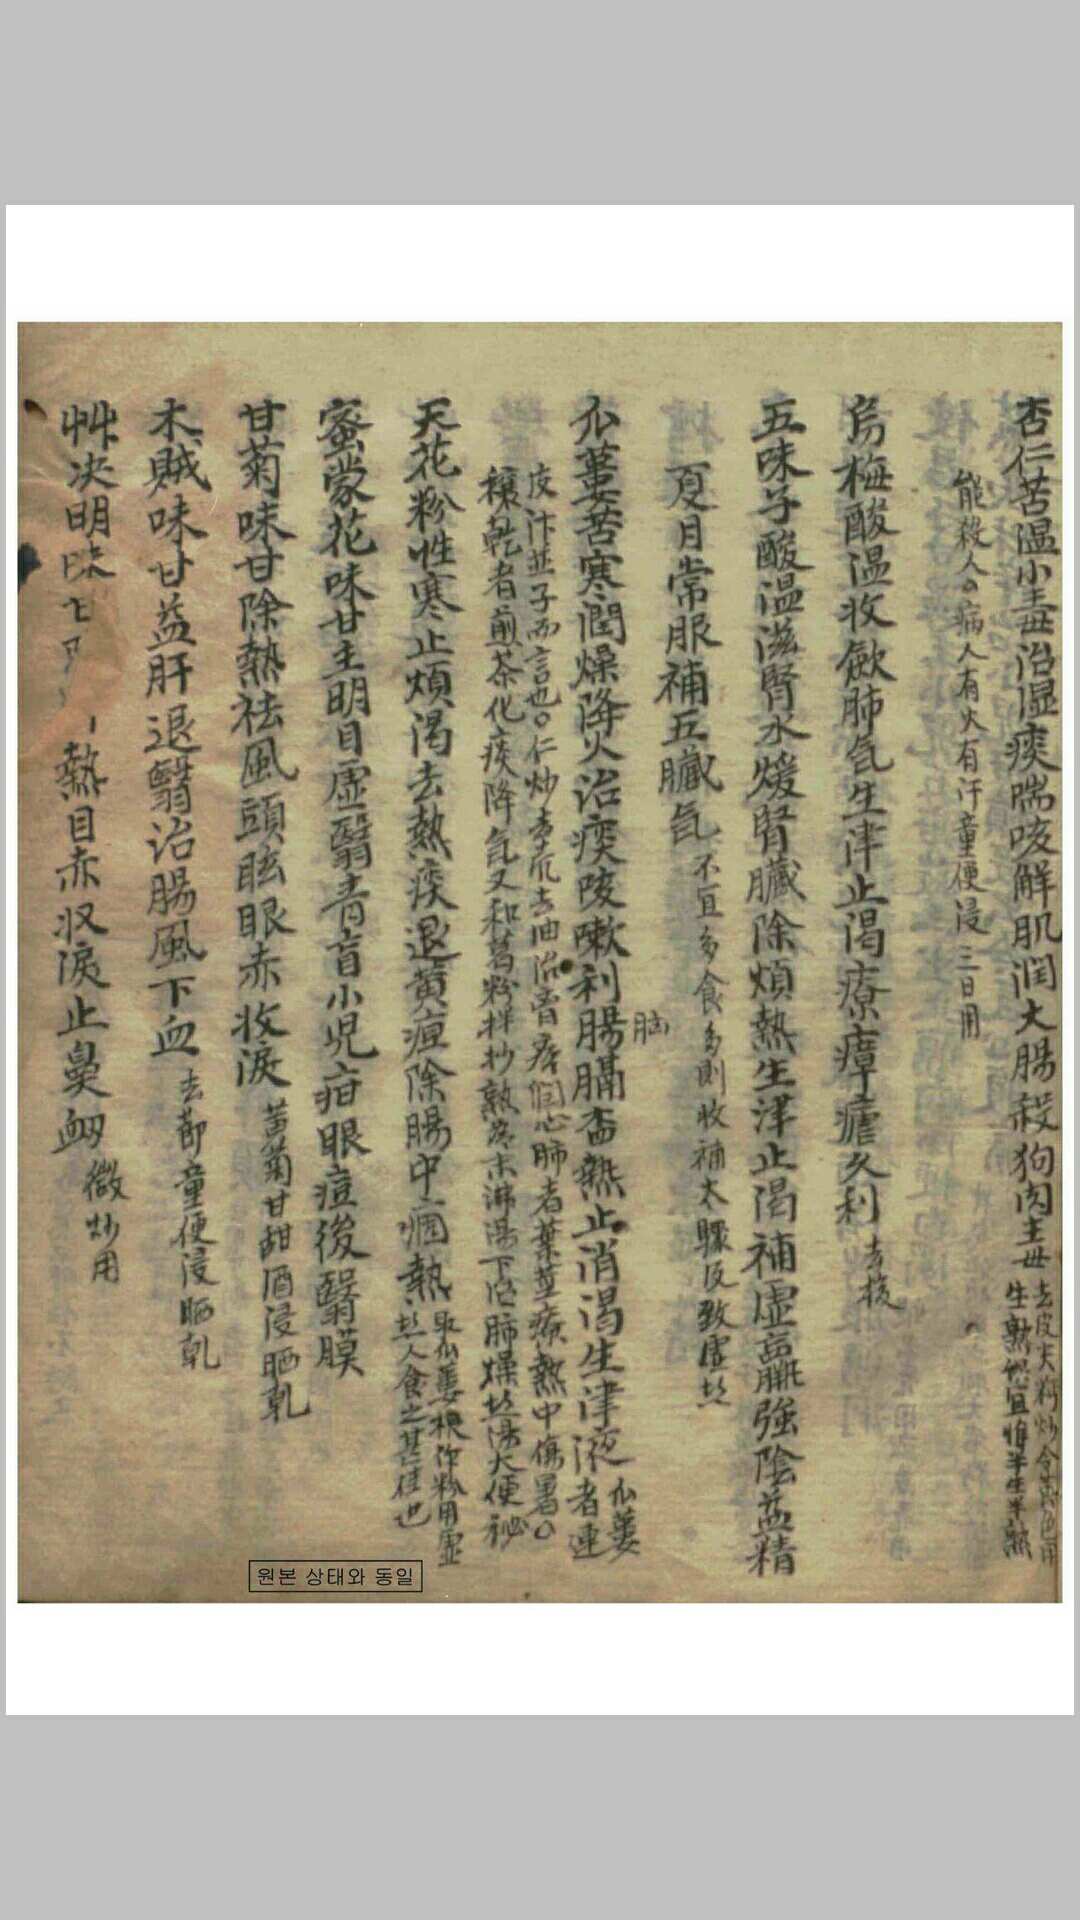 杏仁苦温小毒治湿痰喘咳解肌潤大腸殺狗肉毒
去皮尖麩炒令黄色用
生熟俱宜惟半生半熟
能殺人○病人有火有汗童便浸三日用
烏梅酸温收歛肺气生津止渴療瘴瘧久利
去核
五味子酸温滋腎水煖腎臓除煩熱生津止渴補虚羸強陰益精
夏月常服補五臟气
不宜多食多則收補太驟反致虚
瓜蔞苦寒潤燥降火治痰咳嗽利腸膈盃熱止消渴生津液
瓜蔞
者連
皮汁並子而言也○仁炒去売去油治胸痺潤心肺者葉莖療熱中傷暑○
穰乾者煎茶化痰降气又和葛粉拌炒熟為末沸湯下治肺燥大便秘
天花粉性寒止煩渴去熱痰退黄疸除腸中痼熱
取瓜蔞根作粉用虚
人食之甚佳也
蜜蒙花味甘主明目虚翳青盲小児疳眼痘後翳膜
甘菊味甘除熱祛風頭眩眼赤收淚
苗菊甘甜酒浸晒乾
木賊味甘益肝退翳治腸風下血
去節童便浸晒乾
艸决明味
熱目赤収淚止鼻衂
微炒用
원본 상태와 동일